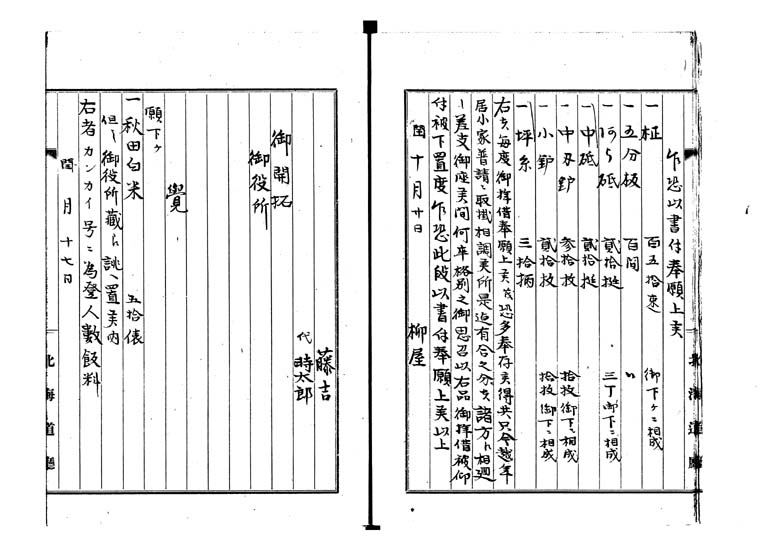 乍恐以書付奉願上候
一 柾 百五拾束 御下ケニ相成
一 五分板 百間 〃
一 阿ら砥 貳拾挺 三丁御下ニ相成
一 中砥 貳拾挺
一 中刄鈩 参拾枚 拾枚御下ニ相成
一 小鈩 貳拾枚 拾枚御下ニ相成
一 坪糸 三拾柄
右者毎度御拝借奉願上候義恐多奉存候得共只今越年
居小家普請ニ取掛相調候所是迄有合之分者諸方ヘ相廻
シ差支御座候間何卒格別之御思召以右品御拝借被仰
付被下置度乍恐此段以書付奉願上候以上
閏十月廿日 柳屋
藤吉
代 時太郎
御開拓
御役所
覺
願下ケ
一 秋田白米 五拾俵
但シ御役所藏ヘ詰置候内
右者カンカイ号ニ為登人數飯料
閏月十七日
北海道廳
北海道廳